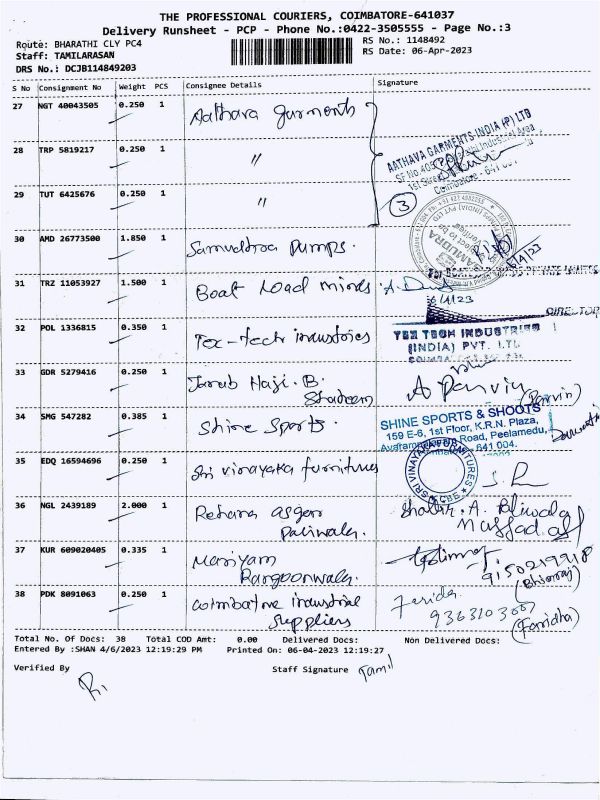 THE PROFESSIONAL COURIERS, COIMBATORE-641037
Delivery Runsheet - PCP - Phone No.:0422-3505555 - Page No.:3
Route: BHARATHI CLY PC4
RS No.: 1148492
Staff: TAMILARASAN
RS Date: 06-Apr-2023
DRS No.: DCJB114849203
S No Consignment No Weight PCS Consignee Details Signature
27 NGT 40043505 0.250 1 Aathava garments
28 TRP 5819217 0.250 1 "
AATHAVA GARMENTS INDIA (P) LTD
Coimbatore - 641
29 TUT 6425676 0.250 1 "
3
30 AMD 26773500 1.850 1 Samudra pumps.
6/4/23
31 TRZ 11053927 1.500 1 Boat Load minds
6/4/23
DIRECTOR
32 POL 1336815 0.350 1 Tex-tech industries
TEX TECH INDUSTRIES
(INDIA) PVT. LTD
33 GDR 5279416 0.250 1 Haji. B.
A Parvin (Parvin)
34 SMG 547282 0.385 1 Shine Sports.
SHINE SPORTS & SHOOTS
159 E-6, 1st Floor, K.R.N. Plaza,
Road, Peelamedu,
641 004.
35 EDQ 16594696 0.250 1 Sri vinayaka furnitures
SRI VINAYAKA FURNITURES
36 NGL 2439189 2.000 1 Rehana asger
paliwala.
37 KUR 609020405 0.335 1 Mariyam
Rangoonwala.
9150219918
38 PDK 8091063 0.250 1 Coimbatore industrial
Suppliers
Farida
9363103007
(Faridha)
Total No. Of Docs: 38 Total COD Amt: 0.00 Delivered Docs: Non Delivered Docs:
Entered By :SHAN 4/6/2023 12:19:29 PM Printed On: 06-04-2023 12:19:27
Verified By
Staff Signature Tamil